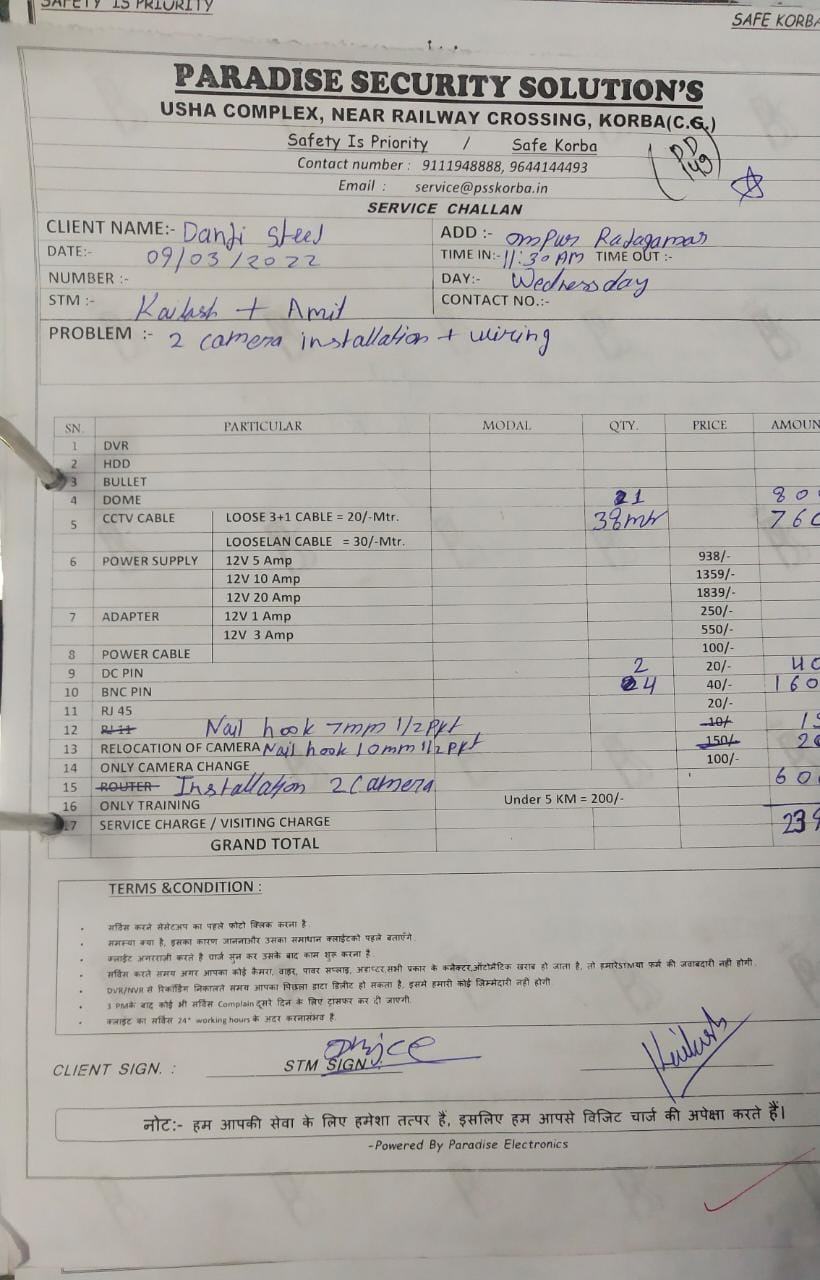 SAFETY IS PRIORITY
SAFE KORBA
PARADISE SECURITY SOLUTION'S
USHA COMPLEX, NEAR RAILWAY CROSSING, KORBA(C.G.)
Safety Is Priority / Safe Korba
DD 149
Contact number : 9111948888, 9644144493
Email : service@psskorba.in
SERVICE CHALLAN
CLIENT NAME:- Danji Steel ADD :- ompur Rajagamar
DATE:- 09/03/2022 TIME IN:- 11:30 AM TIME OUT :-
NUMBER :- DAY:- Wednesday
STM :- Kailash + Amit CONTACT NO.:-
PROBLEM :- 2 camera installation + wiring
SN. PARTICULAR MODAL QTY. PRICE AMOUN
1 DVR
2 HDD
3 BULLET
4 DOME 1 80
5 CCTV CABLE LOOSE 3+1 CABLE = 20/-Mtr. 38mtr 760
LOOSELAN CABLE = 30/-Mtr.
6 POWER SUPPLY 12V 5 Amp 938/-
12V 10 Amp 1359/-
12V 20 Amp 1839/-
7 ADAPTER 12V 1 Amp 250/-
12V 3 Amp 550/-
8 POWER CABLE 100/-
9 DC PIN 2 20/- 40
10 BNC PIN 4 40/- 160
11 RJ 45 20/-
12 RJ 11 Nail hook 7mm 1/2 Pkt 10/- 1
13 RELOCATION OF CAMERA Nail hook 10mm 1/2 Pkt 150/- 2
14 ONLY CAMERA CHANGE 100/-
15 ROUTER Installation 2 Camera 60
16 ONLY TRAINING Under 5 KM = 200/-
17 SERVICE CHARGE / VISITING CHARGE 23
GRAND TOTAL
TERMS &CONDITION :
सर्विस करने सेसेटअप का पहले फोटो क्लिक करना है.
समस्या क्या है, इसका कारण जाननाऔर उसका समाधान क्लाईंटको पहले बताएँगे.
क्लाईंट अगरराजी करते है चार्ज सुन कर उसके बाद काम शुरू करना है.
सर्विस करते समय अगर आपका कोई कैमरा, वाइर, पावर सप्लाइ, अडाप्टर,सभी प्रकार के कनैक्टर,ऑटोमैटिक खराब हो जाता है, तो हमारेSTMया फर्म की जवाबदारी नही होगी.
DVR/NVR से रिकॉर्डिंग निकालते समय आपका पिछला डाटा डिलीट हो सकता है, इसमे हमारी कोई जिम्मेदारी नही होगी.
3 PMके बाद कोई भी सर्विस Complain दूसरे दिन के लिए ट्रांसफर कर दी जाएगी.
क्लाइंट का सर्विस 24* working hours के अंदर करनासंभव है.
CLIENT SIGN. : STM SIGN. Kailash
नोट:- हम आपकी सेवा के लिए हमेशा तत्पर हैं, इसलिए हम आपसे विजिट चार्ज की अपेक्षा करते हैं।
-Powered By Paradise Electronics